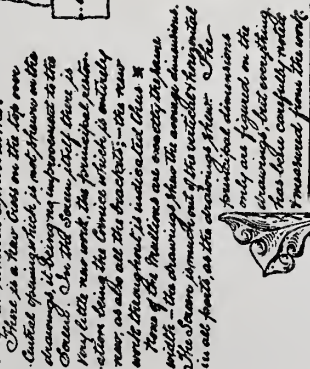 There is a new Cross on the top over
Central opening which is not shewn on the
drawings it being no improvement to the
Screen. In the Screen itself there is
very little new work, the principal
ation being the Cornice which is entirely
new, as also all the brackets; — the new
work throughout is indicated thus ※
None of the Mullions are exactly the same
width — the drawings shew the average dimensions.
The Screen is much out of the vertical & horizontal
in all parts, as the drawings shew. The
principal dimensions
only are figured on the
drawings, but everything
has been carefully noted
& measured from the work.